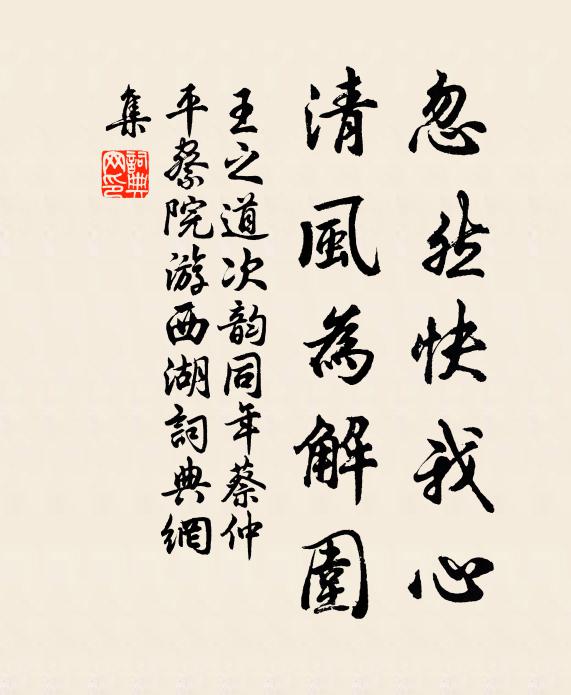 忽然快我心
清風為解圍
王之道次韵同年蔡仲
平察院游西湖詞典網
集
詞典网印